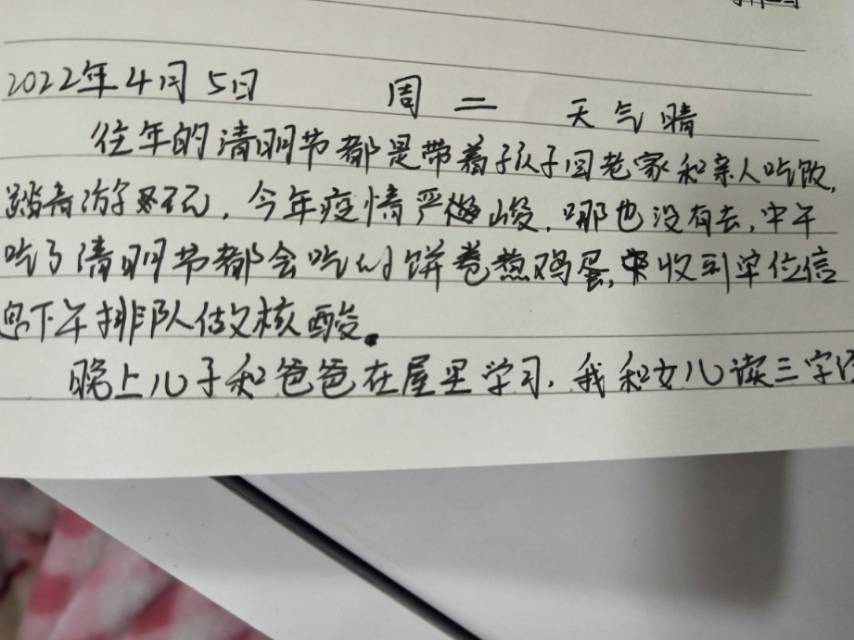 2022年4月5日 周二 天气晴
往年的清明节都是带着孩子回老家和亲人吃饭,
踏青游玩,今年疫情严峻,哪也没有去,中午
吃了清明节都会吃的饼卷葱鸡蛋,收到单位信
息下午排队做核酸。
晚上儿子和爸爸在屋里学习,我和女儿读三字经